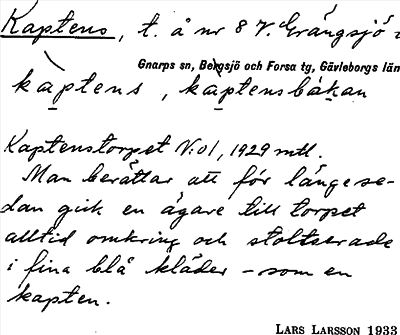 Kaptens, t. å nr 8 V. Grängsjö i
Gnarps sn, Bergsjö och Forsa tg, Gävleborgs län
kaptens, kaptensbákan
Kaptenstorpet N:o1, 1929 mtl.
Man berättar att för längese-
dan gick en ägare till torpet
alltid omkring och stoltserade
i fina blå kläder – som en
kapten.
LARS LARSSON 1933